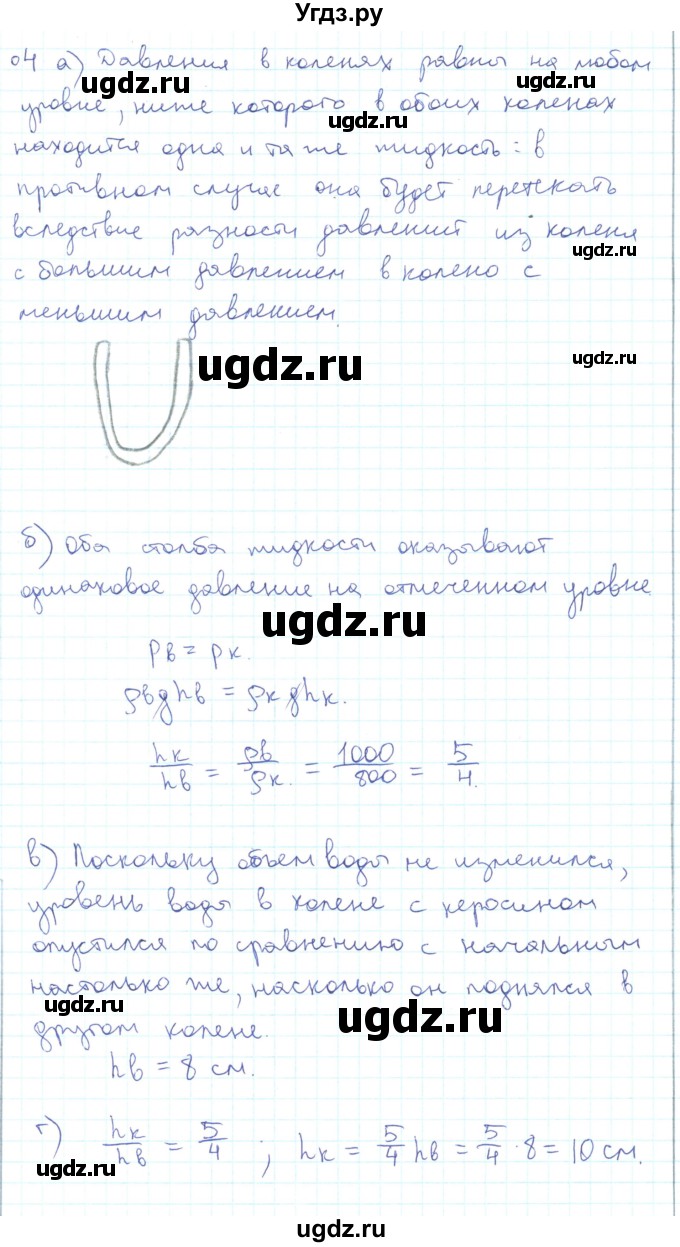 Угдз.ру
04 а) Давления в коленях равны на любом
ugdz.ru
уровне, ниже которого в обоих коленах
ugdz.ru
находится одна и та же жидкость: в
противном случае она будет перетекать
вследствие разности давлений из коленя
ugdz.ru
с большим давлением в колено с
меньшим давлением.
ugdz.ru
ugdz.ru
б) Оба столба жидкости оказывают
одинаковое давление на отмеченном уровне
ugdz.ru
pв = pк.
ρвghв = ρкghк.
hк/hв = ρв/ρк. = 1000/800 = 5/4.
в) Поскольку объем воды не изменился,
уровень воды в колене с керосином
опустился по сравнению с начальным
настолько же, насколько он поднялся в
ugdz.ru
ugdz.ru
другом колене.
hв = 8 см.
г) hк/hв = 5/4 ; hк = 5/4 hв = 5/4 · 8 = 10 см.
ugdz.ru
ugdz.ru